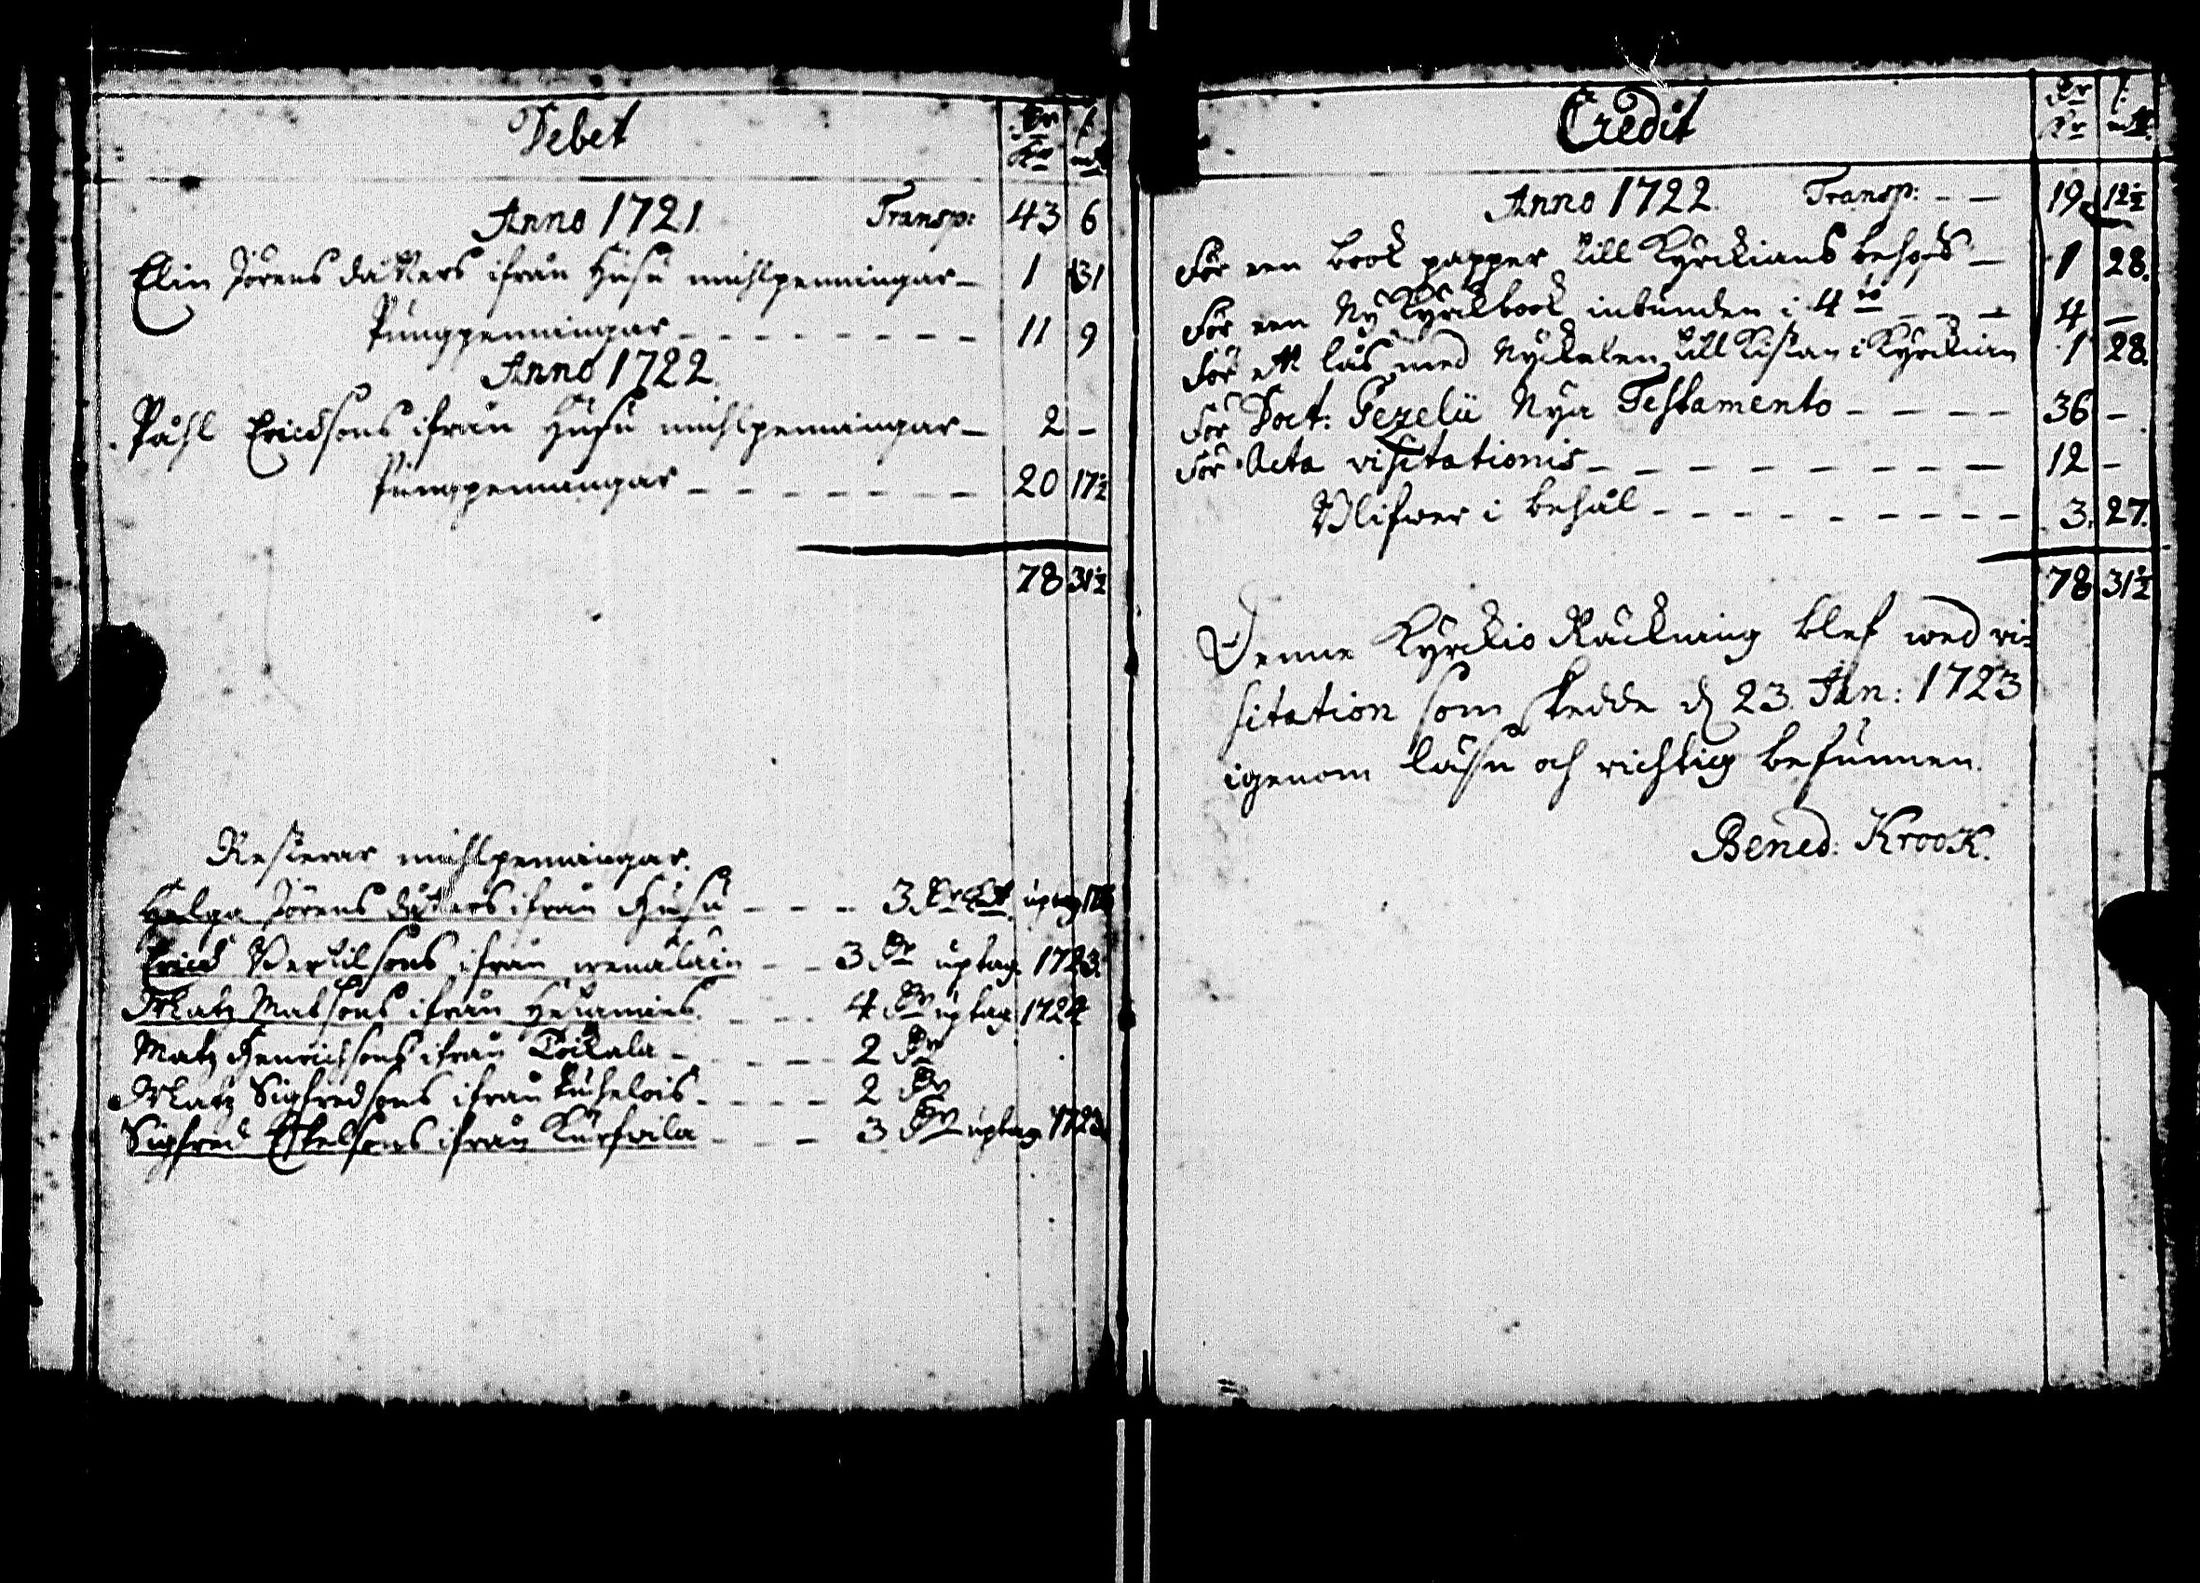 Debet
Dr Kr
ß mt
Anno 1721. Transp: 43 6
Elin Jörens dåtters ifrån Husu muhlpenningar - 1 31
Pungpenningar - - - - - - - 11 9
Anno 1722.
Påhl Ericksons ifrån Husu muhlpenningar - 2 -
Pungpenningar - - - - - - - 20 17½
78 31½
Resterar muhlpenningar.
Helga Jörens dåtters ifrån Husu - - - 3 Dr Kmt uptag
Erick Bertilsons ifrån - - 3 Dr uptag. 1723.
Matz Matsons ifrån - - - - 4 Dr uptag. 1724
Matz Henrichsons ifrån Toikala - - - - 2 Dr
Matz Sigfredsons ifrån - - - - 2 Dr
Sigfred Eskelsons ifrån Kurfvila - - - 3 Dr uptag 1723.
Credit
Dr Kr
ß mt
Anno 1722. Transp: - - 19 12½
För een book papper till Kyrckians behof - 1 28.
För een Ny Kyrckbook inbunden i 4to - - - 4 -
För ett lås med Nyckelen till Kistan i Kyrckian 1 28.
För Doct: Gezelii Nya Testamento - - - - 36 -
För Acta visitationis - - - - - - - - 12 -
Blifwer i behål - - - - - - - - - 3. 27.
78 31½
Denne Kyrckio Räckning blef wed vi=
sitation som skedde d 23. Jan: 1723
igenom läsen och richtig befunnen.
Bened: Krook.